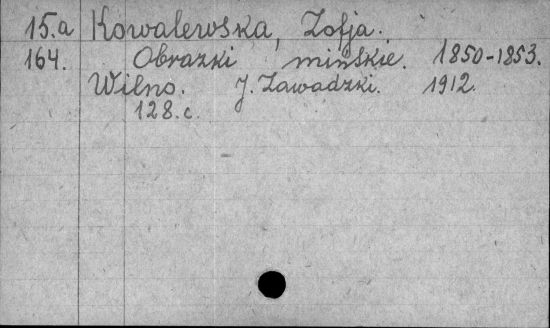 15.a Kowalewska, Zofja.
164. Obrazki mińskie. 1850-1853.
Wilno. J. Zawadzki. 1912.
128.c.